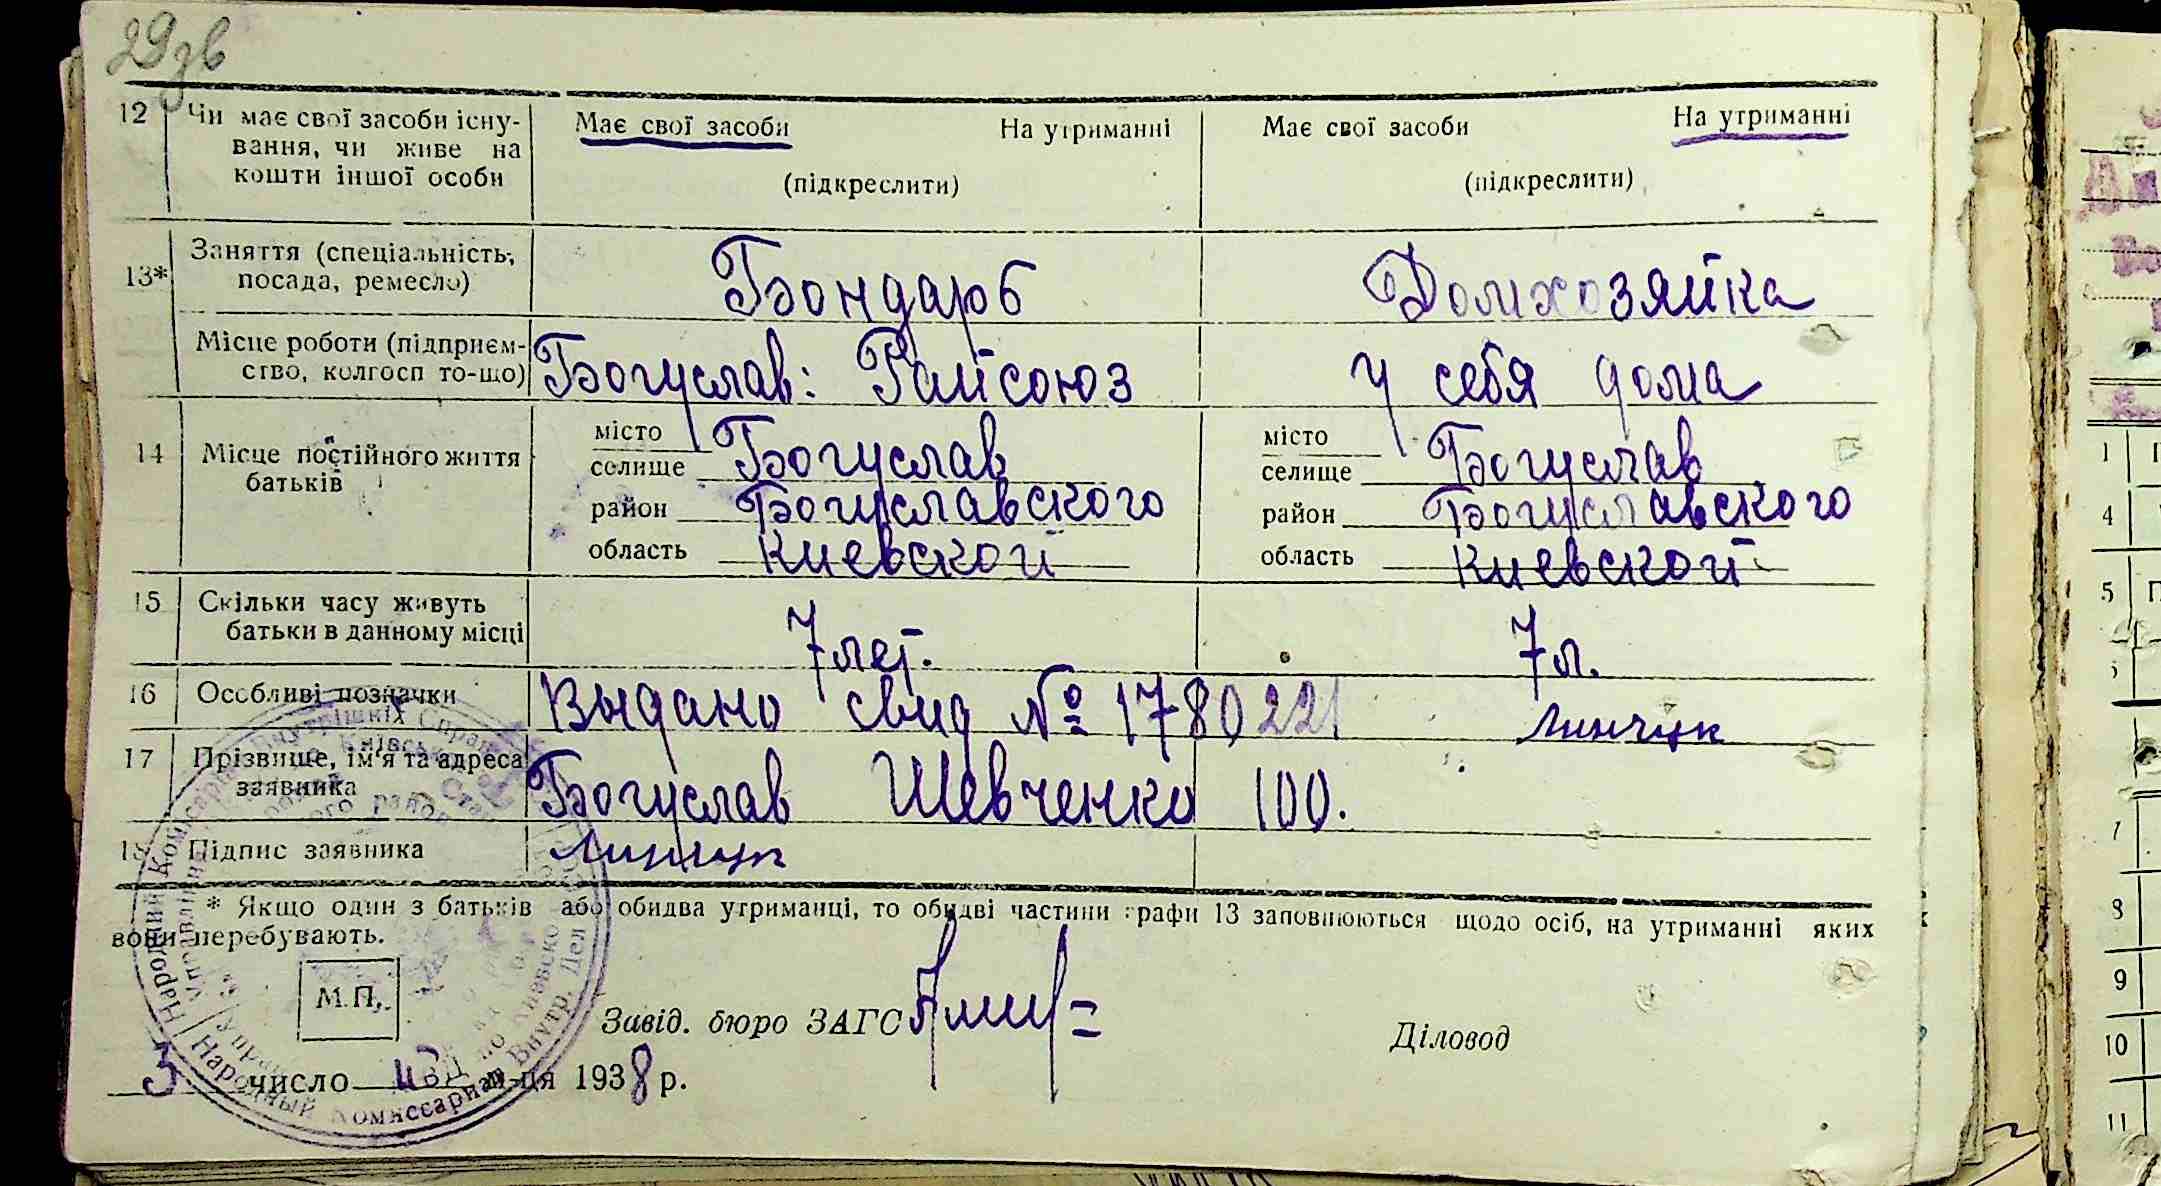 29зв
12 Чи має свої засоби існу- Має свої засоби На утриманні Має свої засоби На утриманні
вання, чи живе на
кошти іншої особи (підкреслити) (підкреслити)
13* Заняття (спеціальність, Бондарь Домхозяйка
посада, ремесло)
Місце роботи (підприєм- Богуслав: Райсоюз у себя дома
ство, колгосп то-що)
14 Місце постійного життя місто Богуслав місто Богуслав
батьків селище селище
район Богуславского район Богуславского
область Киевской область Киевской
15 Скільки часу живуть 7 лет. 7 л.
батьки в данному місці
16 Особливі позначки Выдано свид № 1780221 Линчук
17 Прізвище, ім'я та адреса Богуслав Шевченко 100.
заявника
18 Підпис заявника Линчук
* Якщо один з батьків або обидва утриманці, то обидві частини графи 13 заповнюються щодо осіб, на утриманні яких
вони перебувають.
М.П.
Завід. бюро ЗАГС Діловод
3 число м-ця 1938 р.
Народный Комиссариат Внутр. Дел
1
4
5
7
8
9
10
11